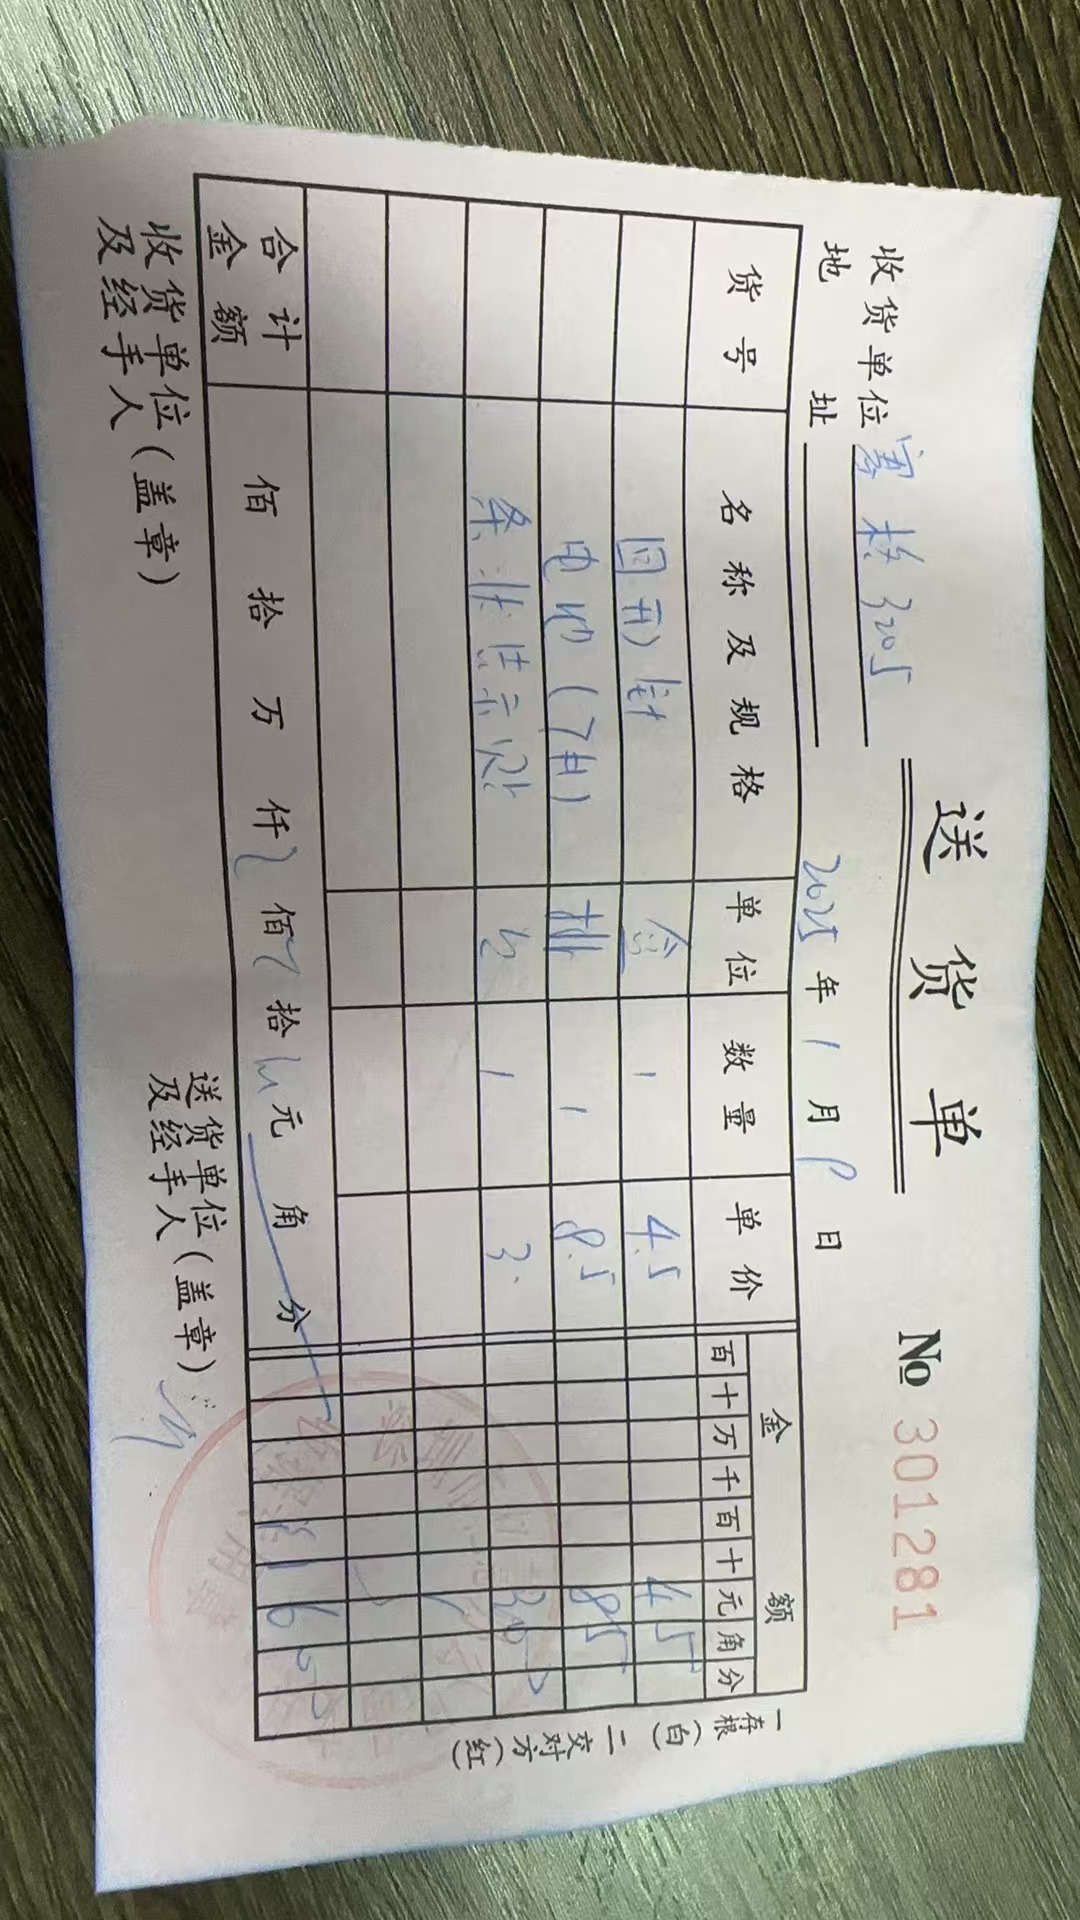 送货单
№ 301281
收货单位 寡核320了
地址
2025年1月8日
货号 名称及规格 单位 数量 单价 金额
百十万千百十元角分
回形针 盒 1 4.5 4 5
电池(7#) 排 1 8.5 8 5
1 3. 3 0 0
合计金额 佰拾万仟佰拾元角分 1 6 0 0
收货单位(盖章)
及经手人
送货单位(盖章)
及经手人
一存根(白) 二交对方(红)